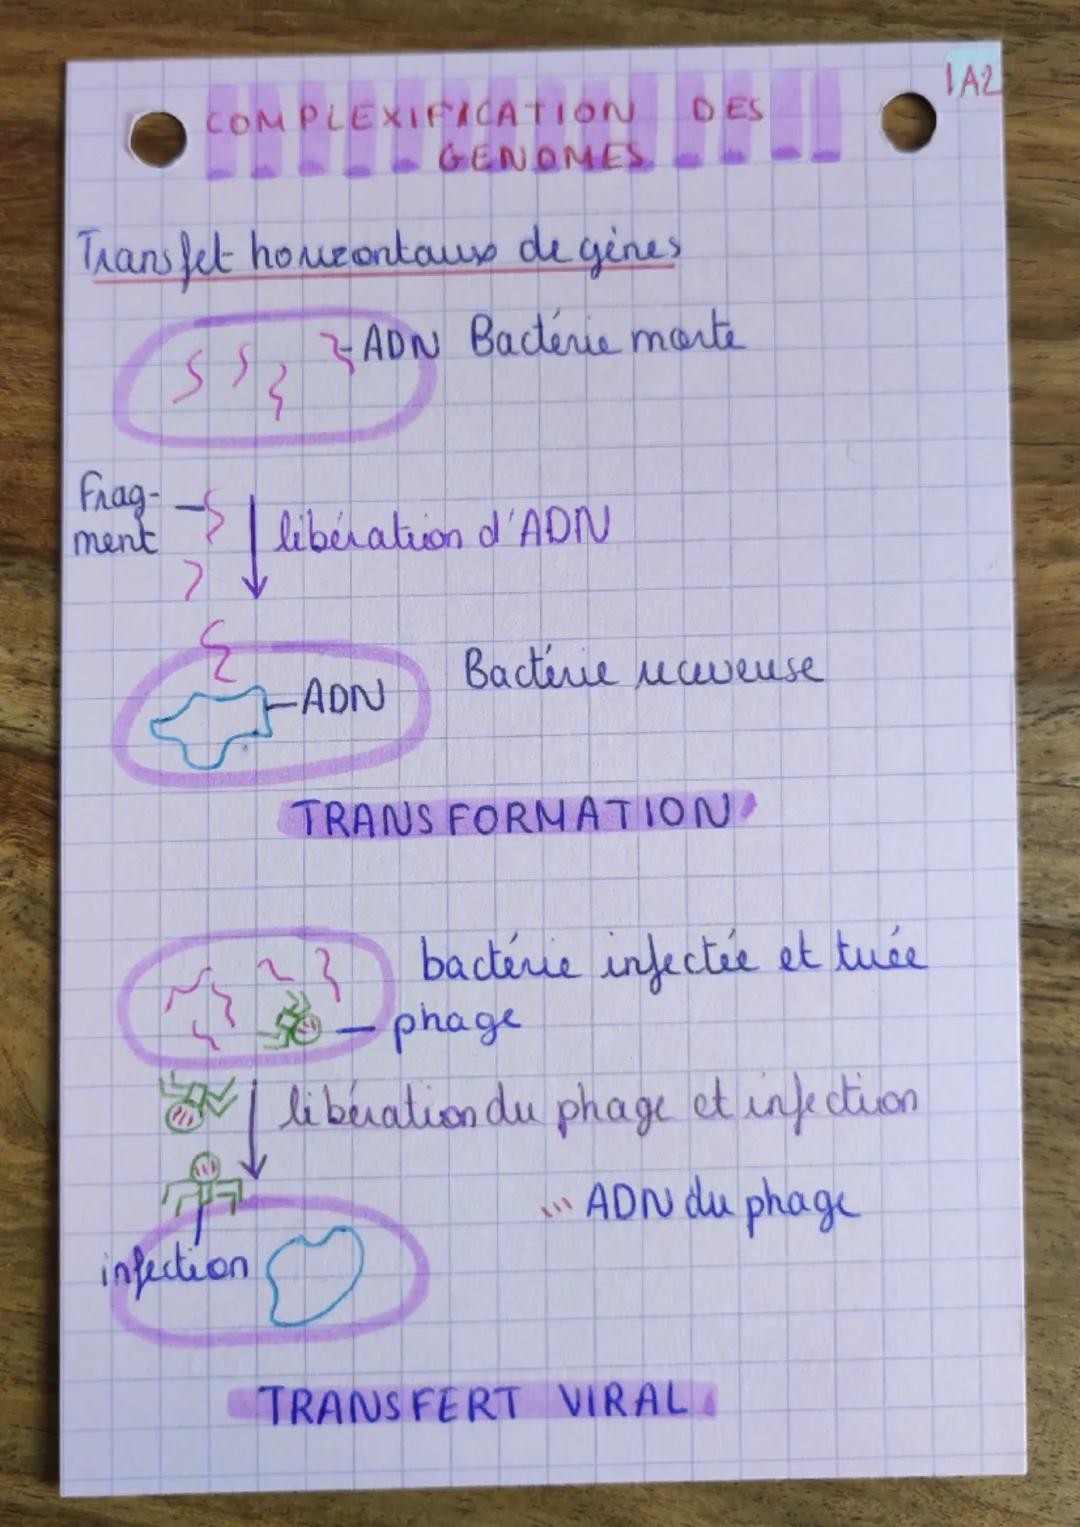 1A2
COMPLEXIFICATION DES
GENOMES
Transfet horizontaux de gènes
ADN Bactérie morte
Frag-
ment
libération d'ADN
Bactérie receveuse
ADN
TRANSFORMATION
bactérie infectée et tuée
phage
libération du phage et infection
ADN du phage
infection
TRANSFERT VIRAL